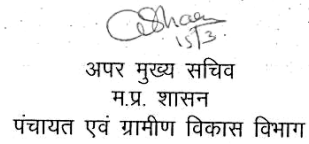 15/3
अपर मुख्य सचिव
म.प्र. शासन
पंचायत एवं ग्रामीण विकास विभाग